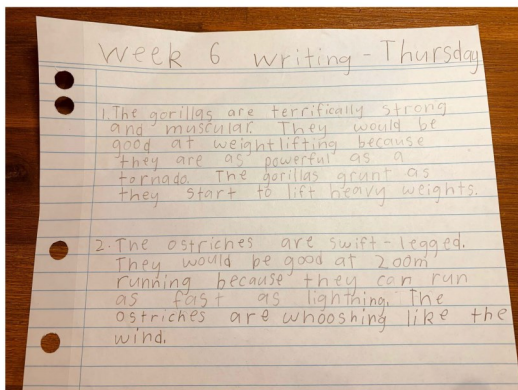 Week 6 writing - Thursday
1. The gorillas are terrifically strong
and muscular. They would be
good at weightlifting because
they are as powerful as a
tornado. The gorillas grunt as
they start to lift heavy weights.
2. The ostriches are swift-legged.
They would be good at 200m
running because they can run
as fast as lightning. The
ostriches are whooshing like the
wind.